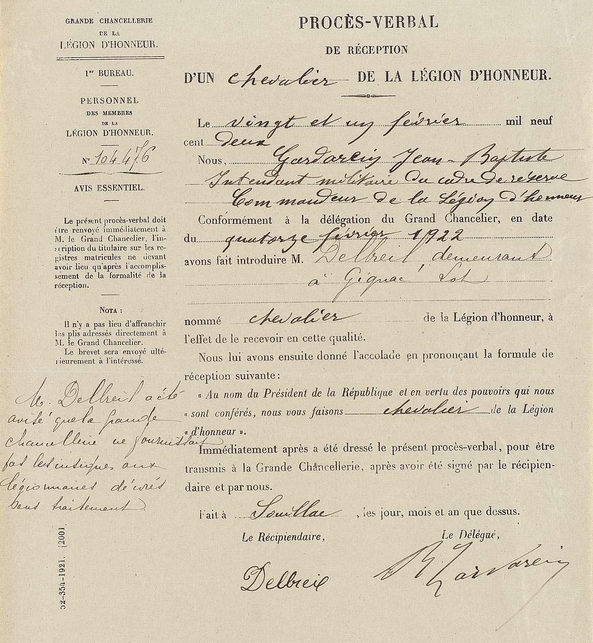 GRANDE CHANCELLERIE
DE LA
LÉGION D'HONNEUR.
1er BUREAU.
PERSONNEL
DES MEMBRES
DE LA
LÉGION D'HONNEUR.
N° 104.476
AVIS ESSENTIEL.
Le présent procès-verbal doit
être renvoyé immédiatement à
M. le Grand Chancelier, l'in-
scription du titulaire sur les re-
gistres matricules ne devant
avoir lieu qu'après l'accomplis-
sement de la formalité de la
réception.
NOTA :
Il n'y a pas lieu d'affranchir
les plis adressés directement à
M. le Grand Chancelier.
Le brevet sera envoyé ulté-
rieurement à l'intéressé.
M. Delbreil a été
avisé que la grande
chancellerie ne fournissait
pas les insignes aux
légionnaires décorés
sans traitement
52-354-1921. [200]
PROCÈS-VERBAL
DE RÉCEPTION
D'UN chevalier DE LA LÉGION D'HONNEUR.
Le vingt et un février mil neuf
cent deux
Nous, Jean-Baptiste
Intendant militaire du cadre de réserve
Commandeur de la Légion d'honneur
Conformément à la délégation du Grand Chancelier, en date
du quatorze février 1922
avons fait introduire M. Delbreil, demeurant
à Gignac Lot
nommé chevalier de la Légion d'honneur, à
l'effet de le recevoir en cette qualité.
Nous lui avons ensuite donné l'accolade en prononçant la formule de
réception suivante:
« Au nom du Président de la République et en vertu des pouvoirs qui nous
« sont conférés, nous vous faisons chevalier de la Légion
« d'honneur ».
Immédiatement après a été dressé le présent procès-verbal, pour être
transmis à la Grande Chancellerie, après avoir été signé par le récipien-
daire et par nous.
Fait à Souillac, les jour, mois et an que dessus.
Le Récipiendaire, Le Délégué,
Delbreil